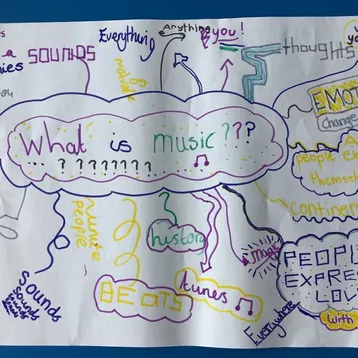 SOUNDS
Everything
Anything
you!
thoughts
EMOT
Change
What is music???
... ? ????????...
people ex
themsel
Continen
unite
people
history
BEATS
tunes
maps
PEOPL
EXPRE
LOV
with
Everywhere
Sounds
Sounds
Sounds
Sounds